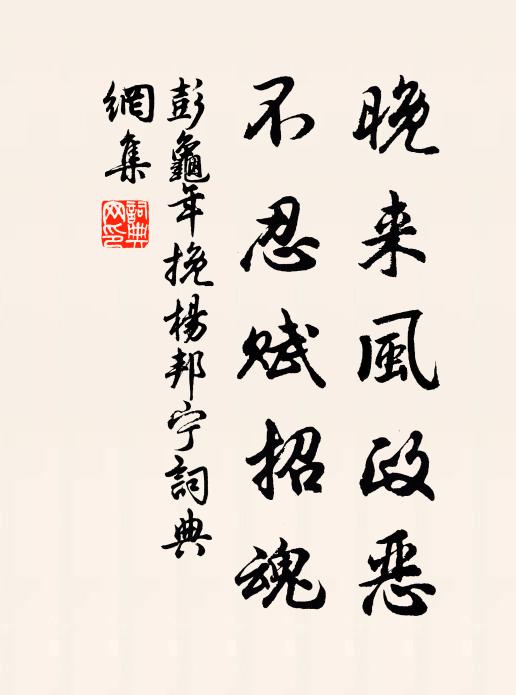 晚来風政惡
不忍赋招魂
彭龜年挽楊邦宁詞典
網集
詞典網印